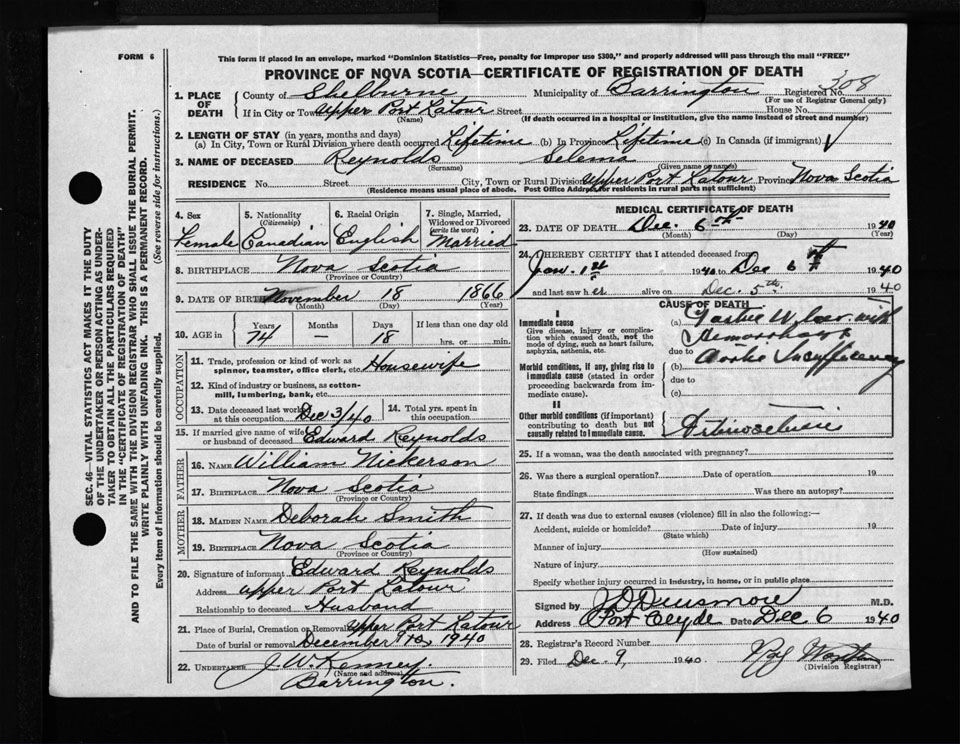 FORM 6
This form if placed in an envelope, marked "Dominion Statistics—Free, penalty for improper use $300," and properly addressed will pass through the mail "FREE"
PROVINCE OF NOVA SCOTIA—CERTIFICATE OF REGISTRATION OF DEATH
308
1. PLACE OF DEATH
County of Shelburne Municipality of Barrington Registered No.
(For use of Registrar General only)
If in City or Town Upper Port Latour Street House No.
(Name) (If death occurred in a hospital or institution, give the name instead of street and number)
2. LENGTH OF STAY (in years, months and days)
(a) In City, Town or Rural Division where death occurred Lifetime (b) In Province Lifetime (c) In Canada (if immigrant)
3. NAME OF DECEASED Reynolds Selema
(Surname) (Given name or names)
RESIDENCE No. Street City, Town or Rural Division Upper Port Latour Province Nova Scotia
(Residence means usual place of abode. Post Office Address for residents in rural parts not sufficient)
4. Sex Female
5. Nationality (Citizenship) Canadian
6. Racial Origin English
7. Single, Married, Widowed or Divorced (write the word) Married
8. BIRTHPLACE Nova Scotia
(Province or Country)
9. DATE OF BIRTH November 18 1866
(Month) (Day) (Year)
10. AGE in Years Months Days If less than one day old
74 — 18 hrs. or min.
OCCUPATION
11. Trade, profession or kind of work as spinner, teamster, office clerk, etc. Housewife
12. Kind of industry or business, as cotton-mill, lumbering, bank, etc.
13. Date deceased last worked at this occupation Dec 3/40
14. Total yrs. spent in this occupation
15. If married give name of wife or husband of deceased Edward Reynolds
FATHER
16. NAME William Nickerson
17. BIRTHPLACE Nova Scotia
(Province or Country)
MOTHER
18. MAIDEN NAME Deborah Smith
19. BIRTHPLACE Nova Scotia
(Province or Country)
20. Signature of informant Edward Reynolds
Address Upper Port Latour
Relationship to deceased Husband
21. Place of Burial, Cremation or Removal Upper Port Latour
Date of burial or removal December 1940
22. UNDERTAKER J. W. Kenney.
(Name and address)
Barrington.
MEDICAL CERTIFICATE OF DEATH
23. DATE OF DEATH Dec. 6th 1940
(Month) (Day) (Year)
24. I HEREBY CERTIFY that I attended deceased from
Jan. 1st 1940 to Dec 6th 1940
and last saw her alive on Dec. 5th 1940
CAUSE OF DEATH
I
Immediate cause
Give disease, injury or complication which caused death, not the mode of dying, such as heart failure, asphyxia, asthenia, etc.
(a) Gastric Ulcer with
Hemorrhage
due to
Morbid conditions, if any, giving rise to immediate cause (stated in order proceeding backwards from immediate cause).
(b) Aortic Insufficiency
due to
(c)
II
Other morbid conditions (if important) contributing to death but not causally related to immediate cause.
25. If a woman, was the death associated with pregnancy?
26. Was there a surgical operation? Date of operation 19
State findings Was there an autopsy?
27. If death was due to external causes (violence) fill in also the following:—
Accident, suicide or homicide? Date of injury 19
(State which)
Manner of injury
(How sustained)
Nature of injury
Specify whether injury occurred in industry, in home, or in public place
Signed by J D Densmore M.D.
Address Port Clyde Date Dec 6 1940
28. Registrar's Record Number
29. Filed Dec. 9, 1940
(Division Registrar)
SEC. 46—VITAL STATISTICS ACT MAKES IT THE DUTY
OF THE UNDERTAKER OR PERSON ACTING AS UNDER-
TAKER TO OBTAIN ALL THE PARTICULARS REQUIRED
IN THE "CERTIFICATE OF REGISTRATION OF DEATH"
AND TO FILE THE SAME WITH THE DIVISION REGISTRAR WHO SHALL ISSUE THE BURIAL PERMIT.
WRITE PLAINLY WITH UNFADING INK. THIS IS A PERMANENT RECORD.
Every item of information should be carefully supplied. (See reverse side for instructions.)